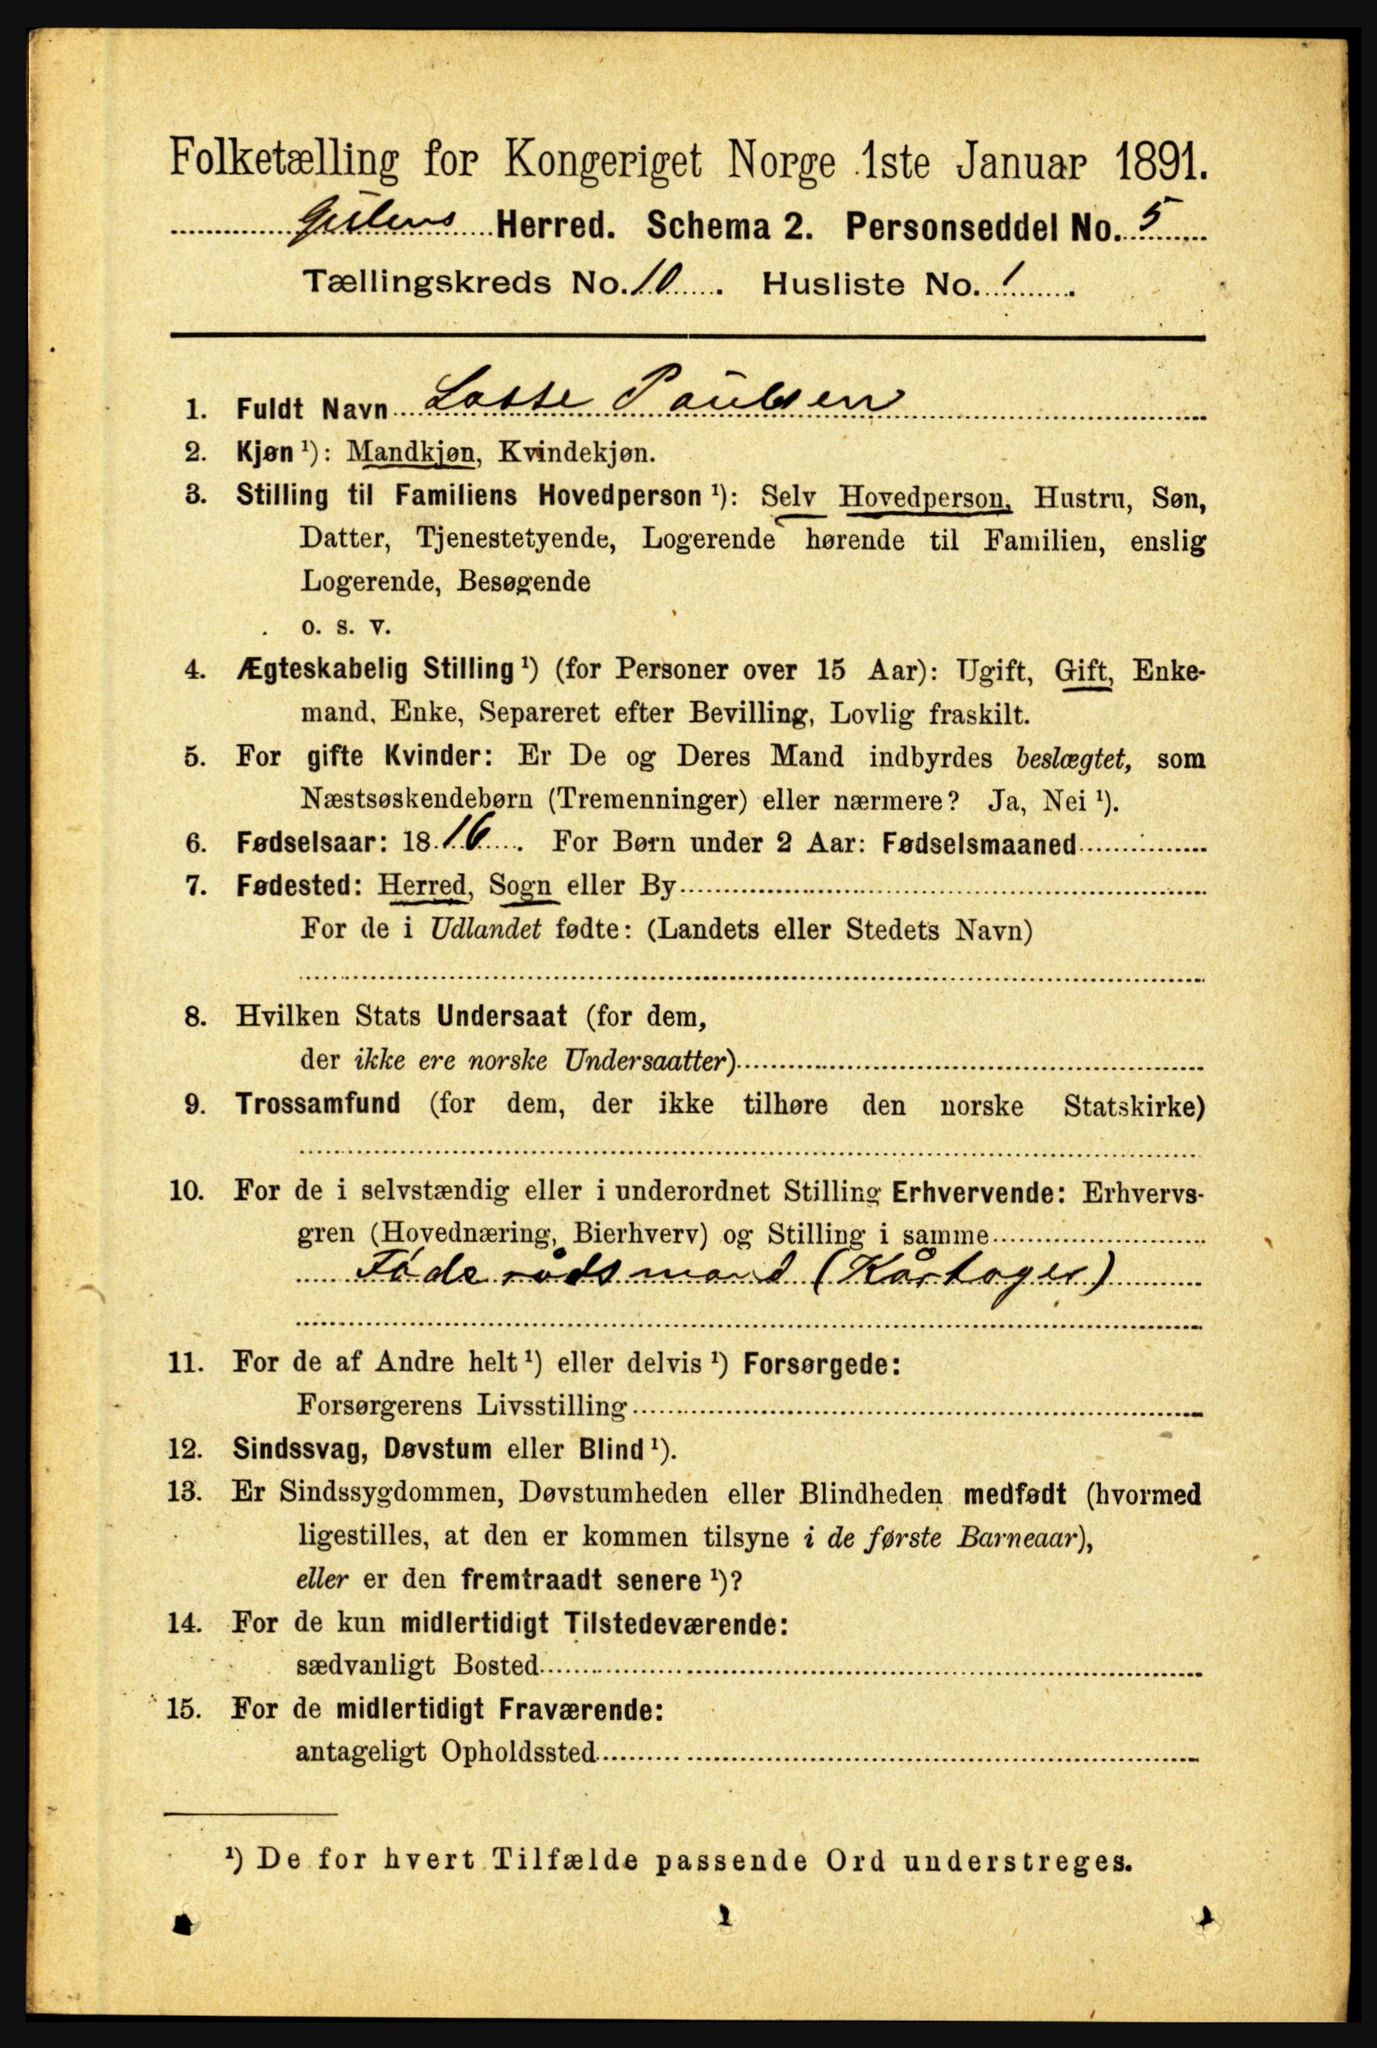 Folketælling for Kongeriget Norge 1ste Januar 1891.
Gulens Herred. Schema 2. Personseddel No. 5
Tællingskreds No. 10. Husliste No. 1.
1. Fuldt Navn Lasse Paulsen
2. Kjøn ¹): Mandkjøn, Kvindekjøn.
3. Stilling til Familiens Hovedperson ¹): Selv Hovedperson, Hustru, Søn,
Datter, Tjenestetyende, Logerende hørende til Familien, enslig
Logerende, Besøgende
o. s. v.
4. Ægteskabelig Stilling ¹) (for Personer over 15 Aar): Ugift, Gift, Enke-
mand, Enke, Separeret efter Bevilling, Lovlig fraskilt.
5. For gifte Kvinder: Er De og Deres Mand indbyrdes beslægtet, som
Næstsøskendebørn (Tremenninger) eller nærmere? Ja, Nei ¹).
6. Fødselsaar: 1816. For Børn under 2 Aar: Fødselsmaaned
7. Fødested: Herred, Sogn eller By
For de i Udlandet fødte: (Landets eller Stedets Navn)
8. Hvilken Stats Undersaat (for dem,
der ikke ere norske Undersaatter)
9. Trossamfund (for dem, der ikke tilhøre den norske Statskirke)
10. For de i selvstændig eller i underordnet Stilling Erhvervende: Erhvervs-
gren (Hovednæring, Bierhverv) og Stilling i samme
Føderådsmand (Kårtager)
11. For de af Andre helt ¹) eller delvis ¹) Forsørgede:
Forsørgerens Livsstilling
12. Sindssvag, Døvstum eller Blind ¹).
13. Er Sindssygdommen, Døvstumheden eller Blindheden medfødt (hvormed
ligestilles, at den er kommen tilsyne i de første Barneaar),
eller er den fremtraadt senere ¹)?
14. For de kun midlertidigt Tilstedeværende:
sædvanligt Bosted
15. For de midlertidigt Fraværende:
antageligt Opholdssted
¹) De for hvert Tilfælde passende Ord understreges.